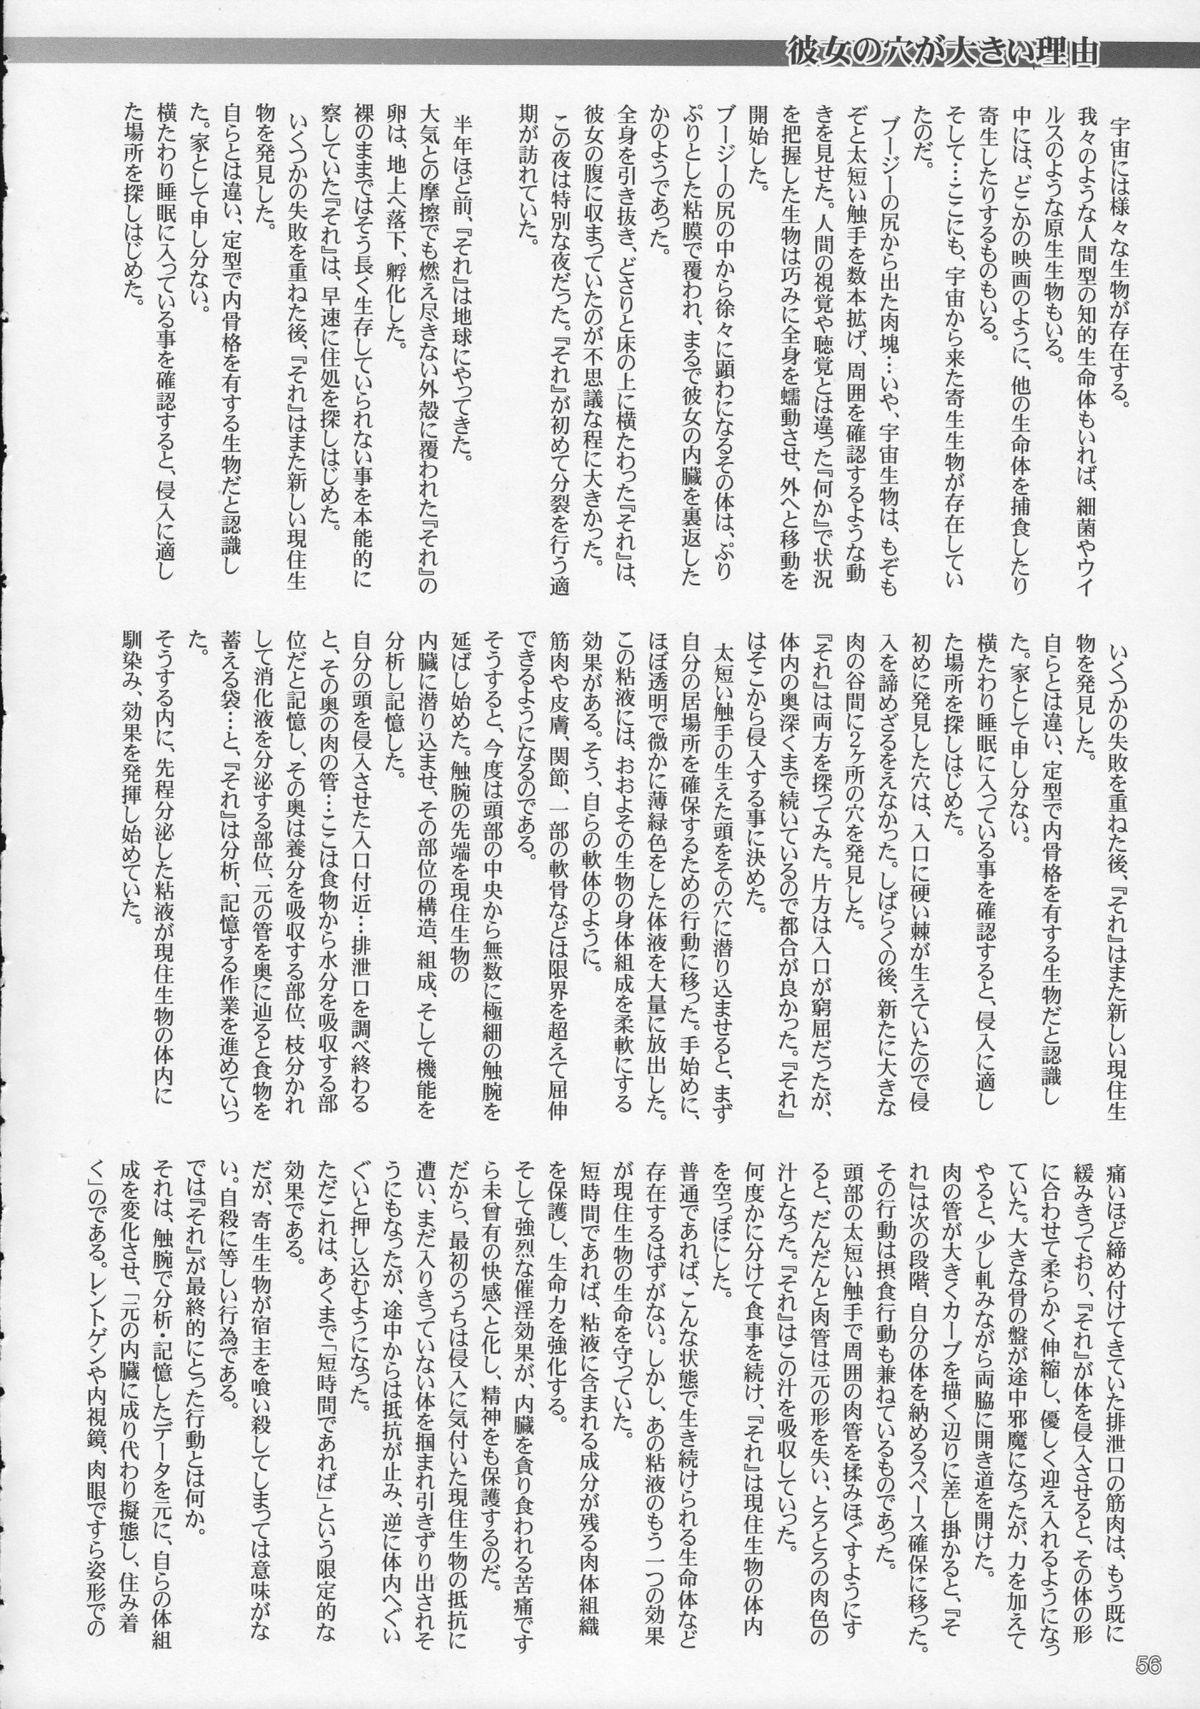 彼女の穴が大きい理由
宇宙には様々な生物が存在する。
我々のような人間型の知的生命体もいれば、細菌やウイ
ルスのような原生生物もいる。
中には、どこかの映画のように、他の生命体を捕食したり
寄生したりするものもいる。
そして…ここにも、宇宙から来た寄生生物が存在してい
たのだ。
ブージーの尻から出た肉塊…いや、宇宙生物は、もぞも
ぞと太短い触手を数本拡げ、周囲を確認するような動
きを見せた。人間の視覚や聴覚とは違った『何か』で状況
を把握した生物は巧みに全身を蠕動させ、外へと移動を
開始した。
ブージーの尻の中から徐々に顕わになるその体は、ぷり
ぷりとした粘膜で覆われ、まるで彼女の内臓を裏返した
かのようであった。
全身を引き抜き、どさりと床の上に横たわった『それ』は、
彼女の腹に収まっていたのが不思議な程に大きかった。
この夜は特別な夜だった。『それ』が初めて分裂を行う適
期が訪れていた。
半年ほど前、『それ』は地球にやってきた。
大気との摩擦でも燃え尽きない外殻に覆われた『それ』の
卵は、地上へ落下、孵化した。
裸のままではそう長く生存していられない事を本能的に
察していた『それ』は、早速に住処を探しはじめた。
いくつかの失敗を重ねた後、『それ』はまた新しい現住生
物を発見した。
自らとは違い、定型で内骨格を有する生物だと認識し
た。家として申し分ない。
横たわり睡眠に入っている事を確認すると、侵入に適し
た場所を探しはじめた。
いくつかの失敗を重ねた後、『それ』はまた新しい現住生
物を発見した。
自らとは違い、定型で内骨格を有する生物だと認識し
た。家として申し分ない。
横たわり睡眠に入っている事を確認すると、侵入に適し
た場所を探しはじめた。
初めに発見した穴は、入口に硬い棘が生えていたので侵
入を諦めざるをえなかった。しばらくの後、新たに大きな
肉の谷間に２ヶ所の穴を発見した。
『それ』は両方を探ってみた。片方は入口が窮屈だったが、
体内の奥深くまで続いているので都合が良かった。『それ』
はそこから侵入する事に決めた。
太短い触手の生えた頭をその穴に潜り込ませると、まず
自分の居場所を確保するための行動に移った。手始めに、
ほぼ透明で微かに薄緑色をした体液を大量に放出した。
この粘液には、おおよその生物の身体組成を柔軟にする
効果がある。そう、自らの軟体のように。
筋肉や皮膚、関節、一部の軟骨などは限界を超えて屈伸
できるようになるのである。
そうすると、今度は頭部の中央から無数に極細の触腕を
延ばし始めた。触腕の先端を現住生物の
内臓に潜り込ませ、その部位の構造、組成、そして機能を
分析し記憶した。
自分の頭を侵入させた入口付近…排泄口を調べ終わる
と、その奥の肉の管…ここは食物から水分を吸収する部
位だと記憶し、その奥は養分を吸収する部位、枝分かれ
して消化液を分泌する部位、元の管を奥に辿ると食物を
蓄える袋…と、『それ』は分析、記憶する作業を進めていっ
た。
そうする内に、先程分泌した粘液が現住生物の体内に
馴染み、効果を発揮し始めていた。
痛いほど締め付けてきていた排泄口の筋肉は、もう既に
緩みきっており、『それ』が体を侵入させると、その体の形
に合わせて柔らかく伸縮し、優しく迎え入れるようになっ
ていた。大きな骨の盤が途中邪魔になったが、力を加えて
やると、少し軋みながら両脇に開き道を開けた。
肉の管が大きくカーブを描く辺りに差し掛かると、『そ
れ』は次の段階、自分の体を納めるスペース確保に移った。
その行動は摂食行動も兼ねているものであった。
頭部の太短い触手で周囲の肉管を揉みほぐすようにす
ると、だんだんと肉管は元の形を失い、とろとろの肉色の
汁となった。『それ』はこの汁を吸収していった。
何度かに分けて食事を続け、『それ』は現住生物の体内
を空っぽにした。
普通であれば、こんな状態で生き続けられる生命体など
存在するはずがない。しかし、あの粘液のもう一つの効果
が現住生物の生命を守っていた。
短時間であれば、粘液に含まれる成分が残る肉体組織
を保護し、生命力を強化する。
そして強烈な催淫効果が、内臓を貪り食われる苦痛です
ら未曾有の快感へと化し、精神をも保護するのだ。
だから、最初のうちは侵入に気付いた現住生物の抵抗に
遭い、まだ入りきっていない体を掴まれ引きずり出されそ
うにもなったが、途中からは抵抗が止み、逆に体内へぐい
ぐいと押し込むようになった。
ただこれは、あくまで「短時間であれば」という限定的な
効果である。
だが、寄生生物が宿主を喰い殺してしまっては意味がな
い。自殺に等しい行為である。
では『それ』が最終的にとった行動とは何か。
それは、触腕で分析・記憶したデータを元に、自らの体組
成を変化させ、「元の内臓に成り代わり擬態し、住み着
く」のである。レントゲンや内視鏡、肉眼ですら姿形での
56